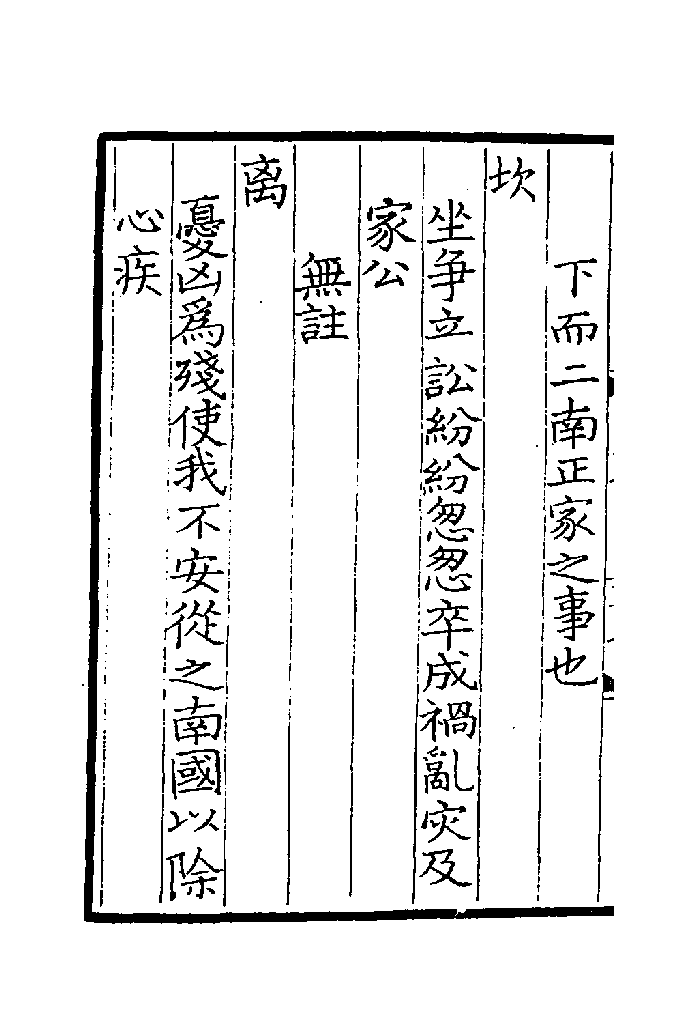 下而二南正家之事也
坎
坐爭立訟紛紛怱怱卒成禍亂灾及
家公
無註
离
憂凶爲殘使我不安從之南國以除
心疾